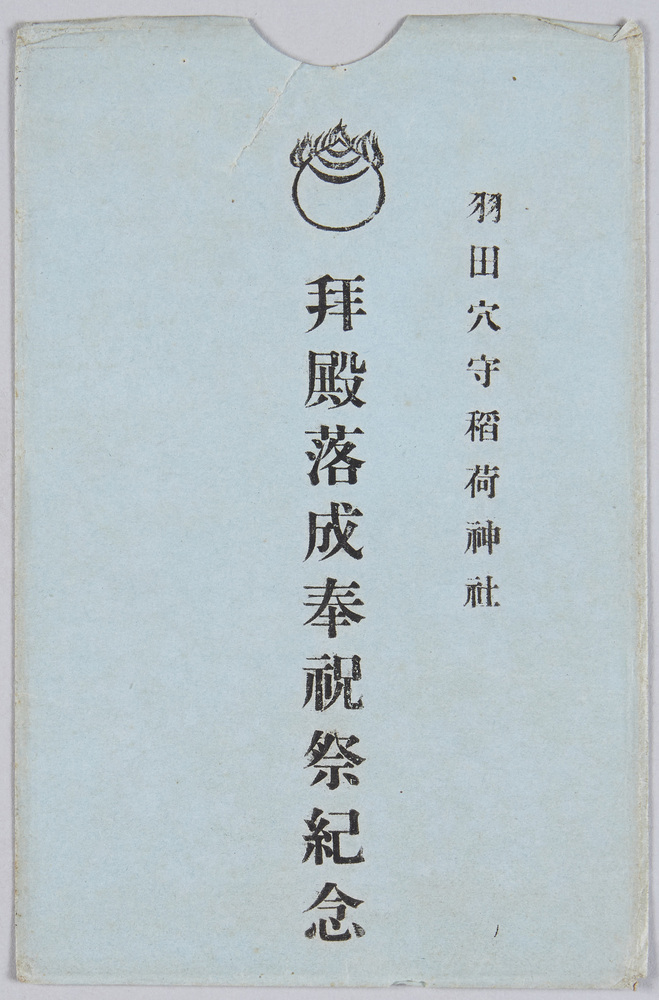 羽田穴守稲荷神社
拜殿落成奉祝祭紀念